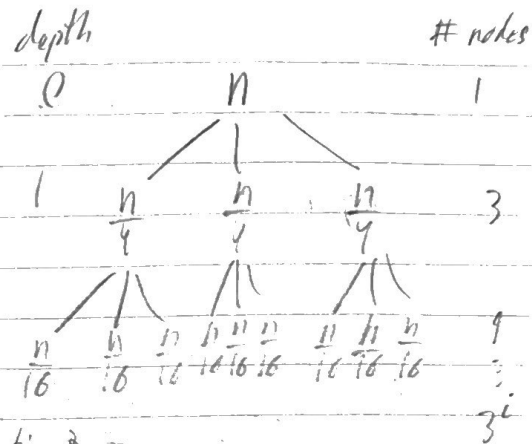 depth # nodes
0 n 1
1 n/4 n/4 n/4 3
n/16 n/16 n/16 n/16 n/16 n/16 n/16 n/16 n/16 9
3^i